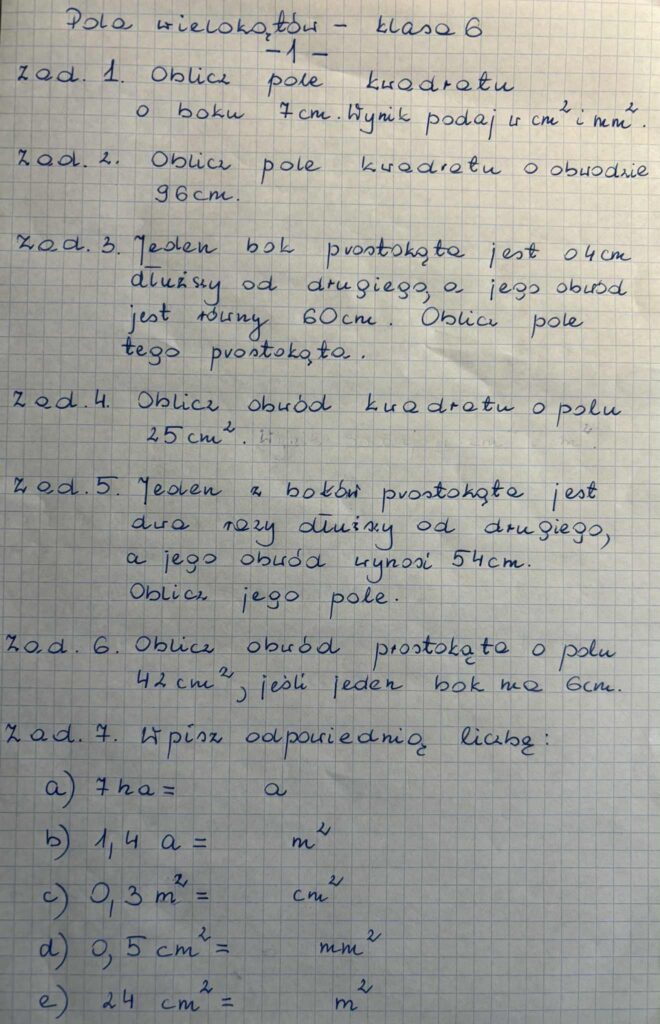 Pola wielokątów - klasa 6
- 1 -
Zad. 1. Oblicz pole kwadratu
o boku 7cm. Wynik podaj w cm² i mm².
Zad. 2. Oblicz pole kwadratu o obwodzie
96cm.
Zad. 3. Jeden bok prostokąta jest o 4cm
dłuższy od drugiego, a jego obwód
jest równy 60cm. Oblicz pole
tego prostokąta.
Zad. 4. Oblicz obwód kwadratu o polu
25cm².
Zad. 5. Jeden z boków prostokąta jest
dwa razy dłuższy od drugiego,
a jego obwód wynosi 54cm.
Oblicz jego pole.
Zad. 6. Oblicz obwód prostokąta o polu
42cm², jeśli jeden bok ma 6cm.
Zad. 7. Wpisz odpowiednią liczbę:
a) 7ha = a
b) 1,4 a = m²
c) 0,3 m² = cm²
d) 0,5 cm² = mm²
e) 24 cm² = m²